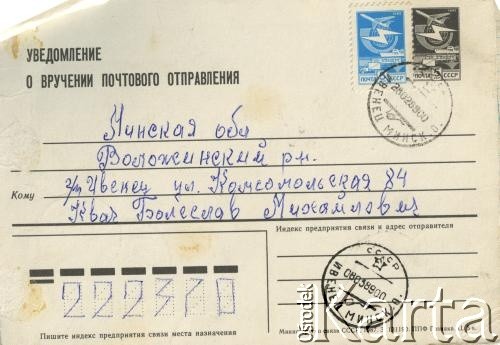 УВЕДОМЛЕНИЕ
О ВРУЧЕНИИ ПОЧТОВОГО ОТПРАВЛЕНИЯ
ПОЧТА СССР
ПОЧТА СССР
ИВЕНЕЦ МИНСК. О.
Минская обл
Воложинский рн.
г/п Ивенец ул. Комсомольская 84
Кому
Квач Болеслав Михайлович
Индекс предприятия связи и адрес отправителя
СССР
ИВЕНЕЦ МИНСК. О.
222370
Пишите индекс предприятия связи места назначения
связи СССР
Ośrodek
Karta